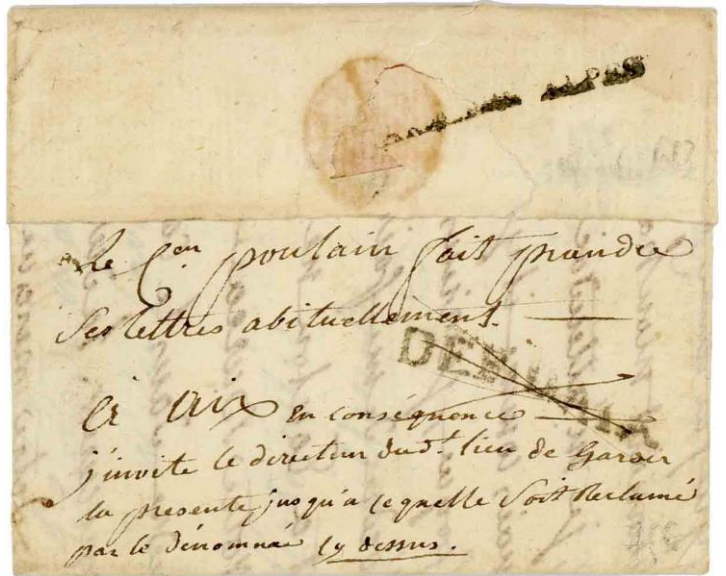 ALPES
Le Cen poulain fait prandre
Ses lettres abituellement.
DEB
a aix en conséquence
j'invite le directeur dudt. lieu de Garder
la presente jusqu'a ce quelle Soit Reclamé
par le dénommée cy dessus.